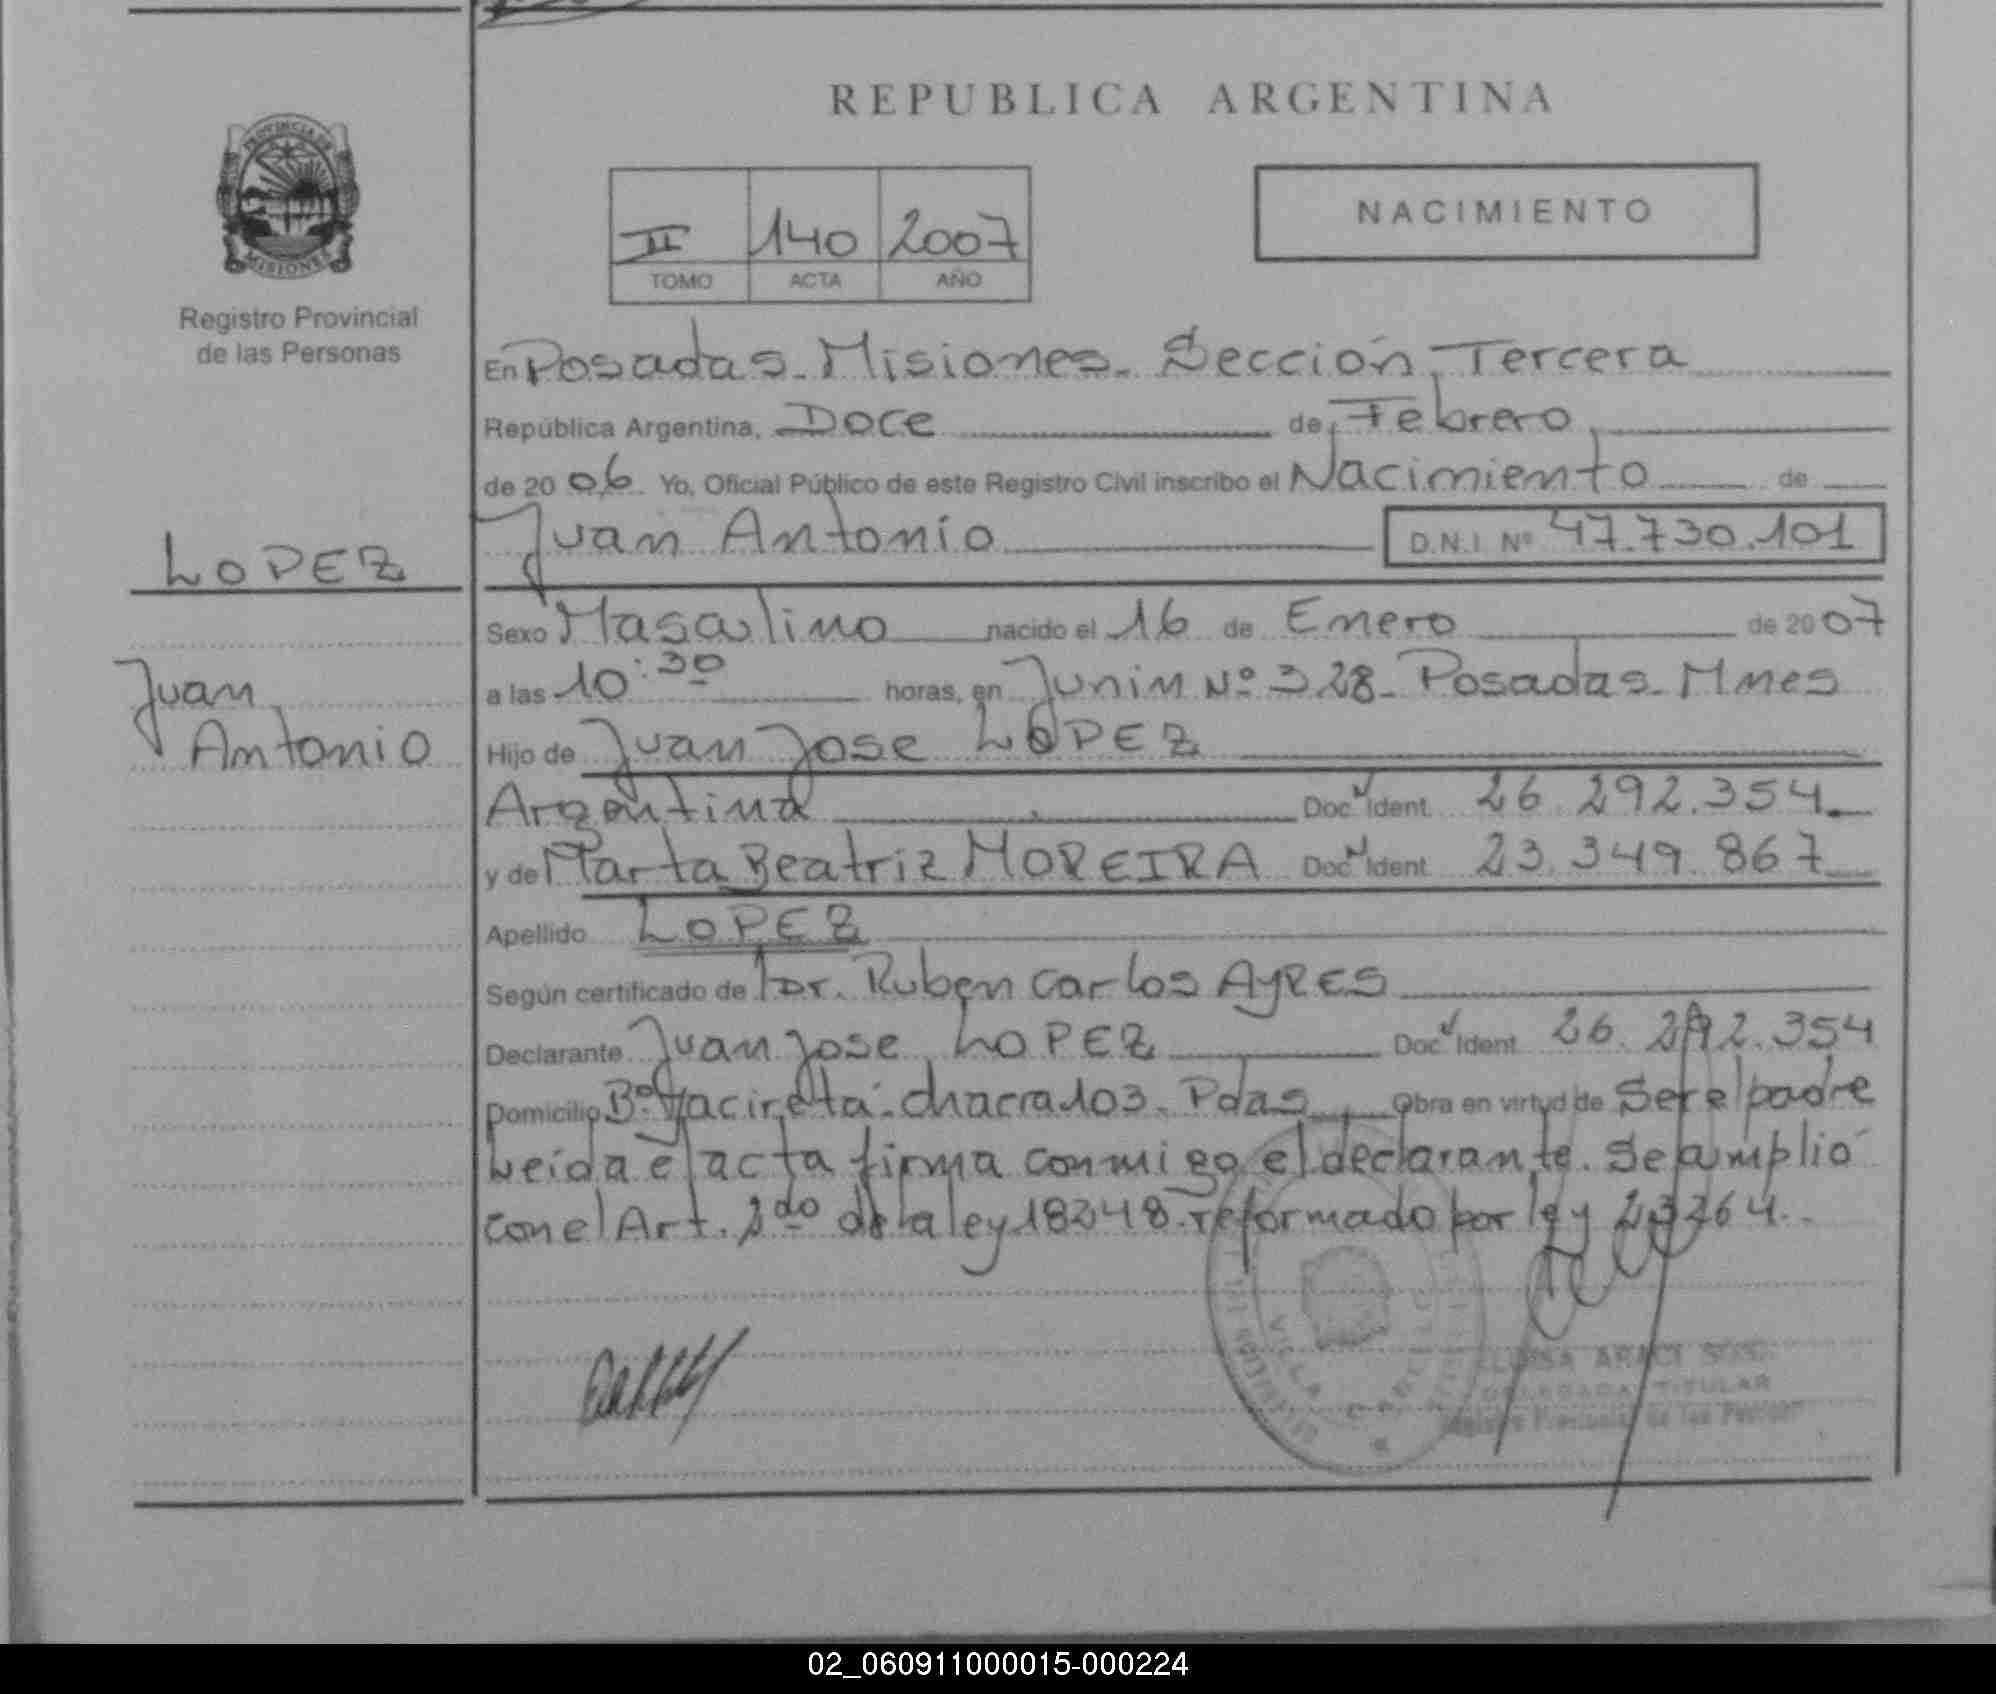 REPUBLICA ARGENTINA
PROVINCIA DE
MISIONES
Registro Provincial
de las Personas
II 140 2007
TOMO ACTA AÑO
NACIMIENTO
En Posadas. Misiones. Sección Tercera
República Argentina, Doce de Febrero
de 2006. Yo, Oficial Público de este Registro Civil inscribo el Nacimiento de
Juan Antonio D.N.I. Nº 47.730.101
LOPEZ
Juan
Antonio
Sexo Masculino nacido el 16 de Enero de 2007
a las 10:30 horas, en Junin Nº 328. Posadas. Mnes
Hijo de Juan Jose LOPEZ
Argentina Doc. Ident. 26.292.354
y de Marta Beatriz MOREIRA Doc. Ident. 23.349.867
Apellido LOPEZ
Según certificado de Dr. Ruben Carlos AYRES
Declarante Juan Jose LOPEZ Doc. Ident. 26.292.354
Domicilio Bº Yacireta. chacra 103. Pdas Obra en virtud de Ser el padre
Leída el acta firma conmigo el declarante. Se amplió
con el Art. 2do de la ley 18248. reformado por ley 23264.
VILLA CABELLO
ARACI
DELEGADA TITULAR
Registro Provincial de las Personas
02_060911000015-000224